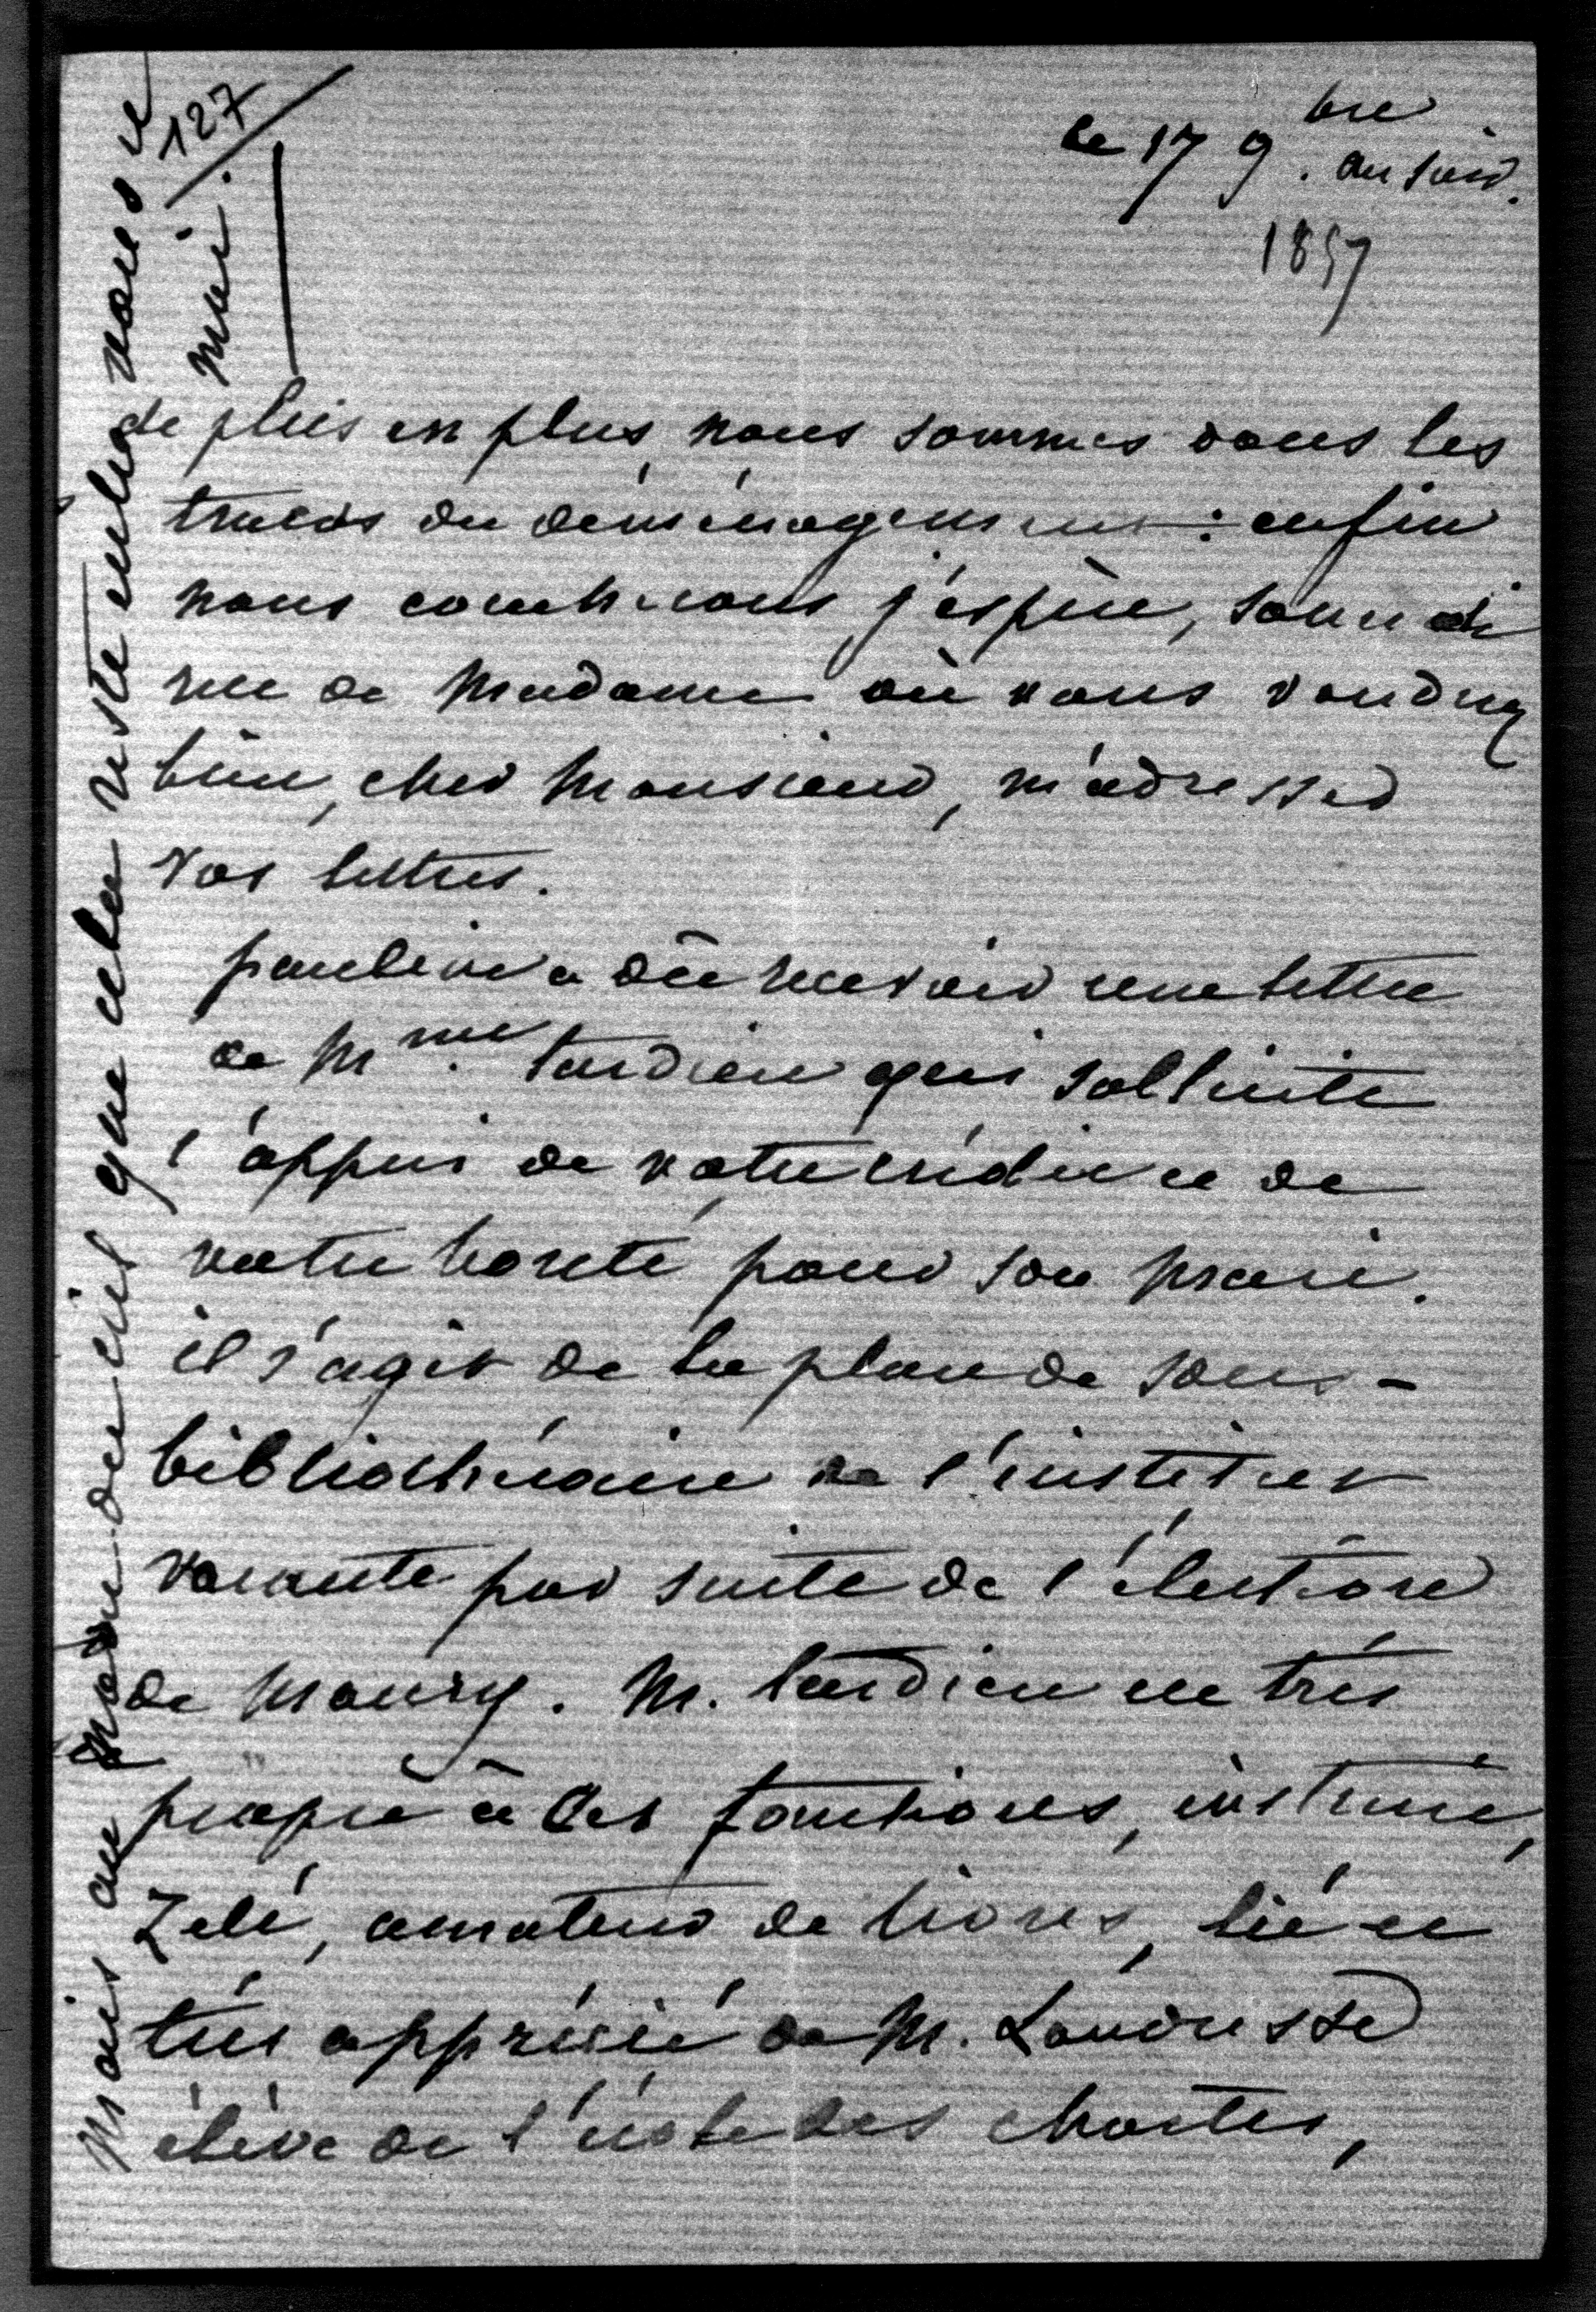 127
le 17 9.bre au soir.
1857
de plus en plus nous sommes dans les
tracas du déménagement : enfin
nous coucherons j'espère, samedi
rue de Madame où vous voudrez
bien, cher Monsieur, m'adresser
vos lettres.
pauline a dû recevoir une lettre
de Mme. tardieu qui sollicite
l'appui de votre crédit et de
votre bonté pour son mari.
il s'agit de la place de sous-
bibliothécaire de l'institut
vacante par suite de l'élection
de Maury. M. tardieu est très
propre à ces fonctions, instruit,
zélé, amateur de livres, lié et
très apprécié de M. Landresse
élève de l'école des chartes,
Mais au nom du ciel que cela reste entre vous et
moi.